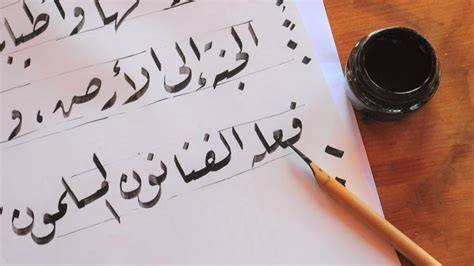 ها وأطيا
الجنة إلى الأرض، و
فعله الفنانون المسلمون